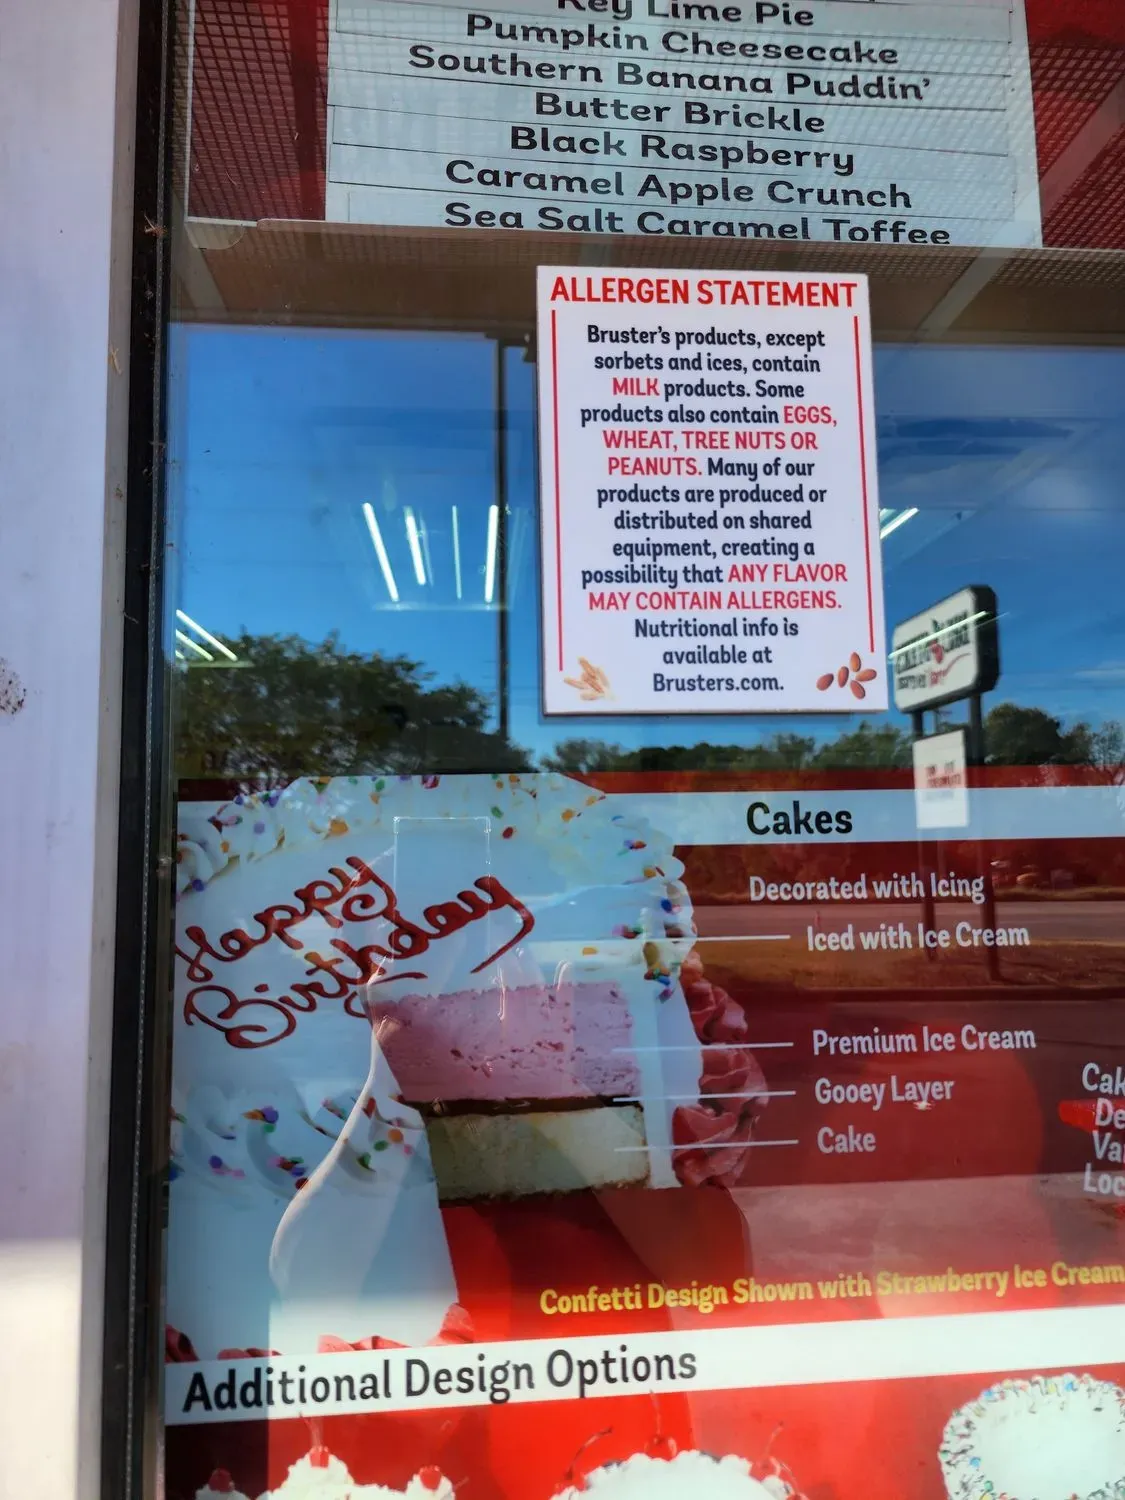 Key Lime Pie
Pumpkin Cheesecake
Southern Banana Puddin'
Butter Brickle
Black Raspberry
Caramel Apple Crunch
Sea Salt Caramel Toffee
ALLERGEN STATEMENT
Bruster's products, except
sorbets and ices, contain
MILK products. Some
products also contain EGGS,
WHEAT, TREE NUTS OR
PEANUTS. Many of our
products are produced or
distributed on shared
equipment, creating a
possibility that ANY FLAVOR
MAY CONTAIN ALLERGENS.
Nutritional info is
available at
Brusters.com.
Cakes
Happy
Birthday
Decorated with Icing
Iced with Ice Cream
Premium Ice Cream
Gooey Layer
Cake
Confetti Design Shown with Strawberry Ice Cream
Additional Design Options